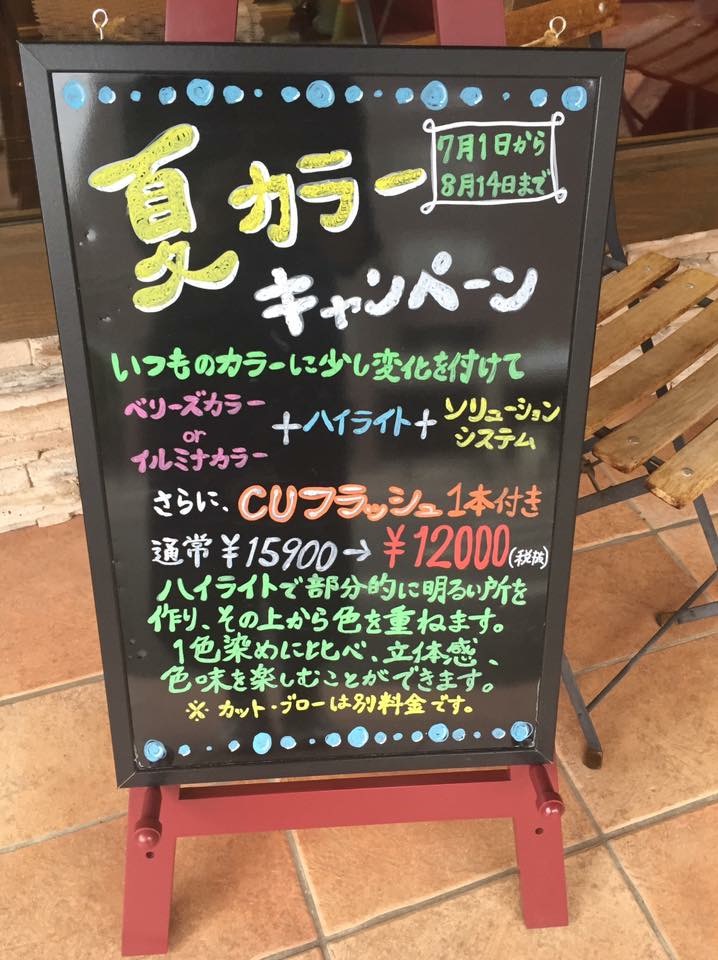 夏カラー
7月1日から
8月14日まで
キャンペーン
いつものカラーに少し変化を付けて
ベリーズカラー
or
イルミナカラー
+ハイライト+
ソリューション
システム
さらに、CUフラッシュ1本付き
通常¥15900→¥12000(税抜)
ハイライトで部分的に明るい所を
作り、その上から色を重ねます。
1色染めに比べ、立体感、
色味を楽しむことができます。
※カット・ブローは別料金です。